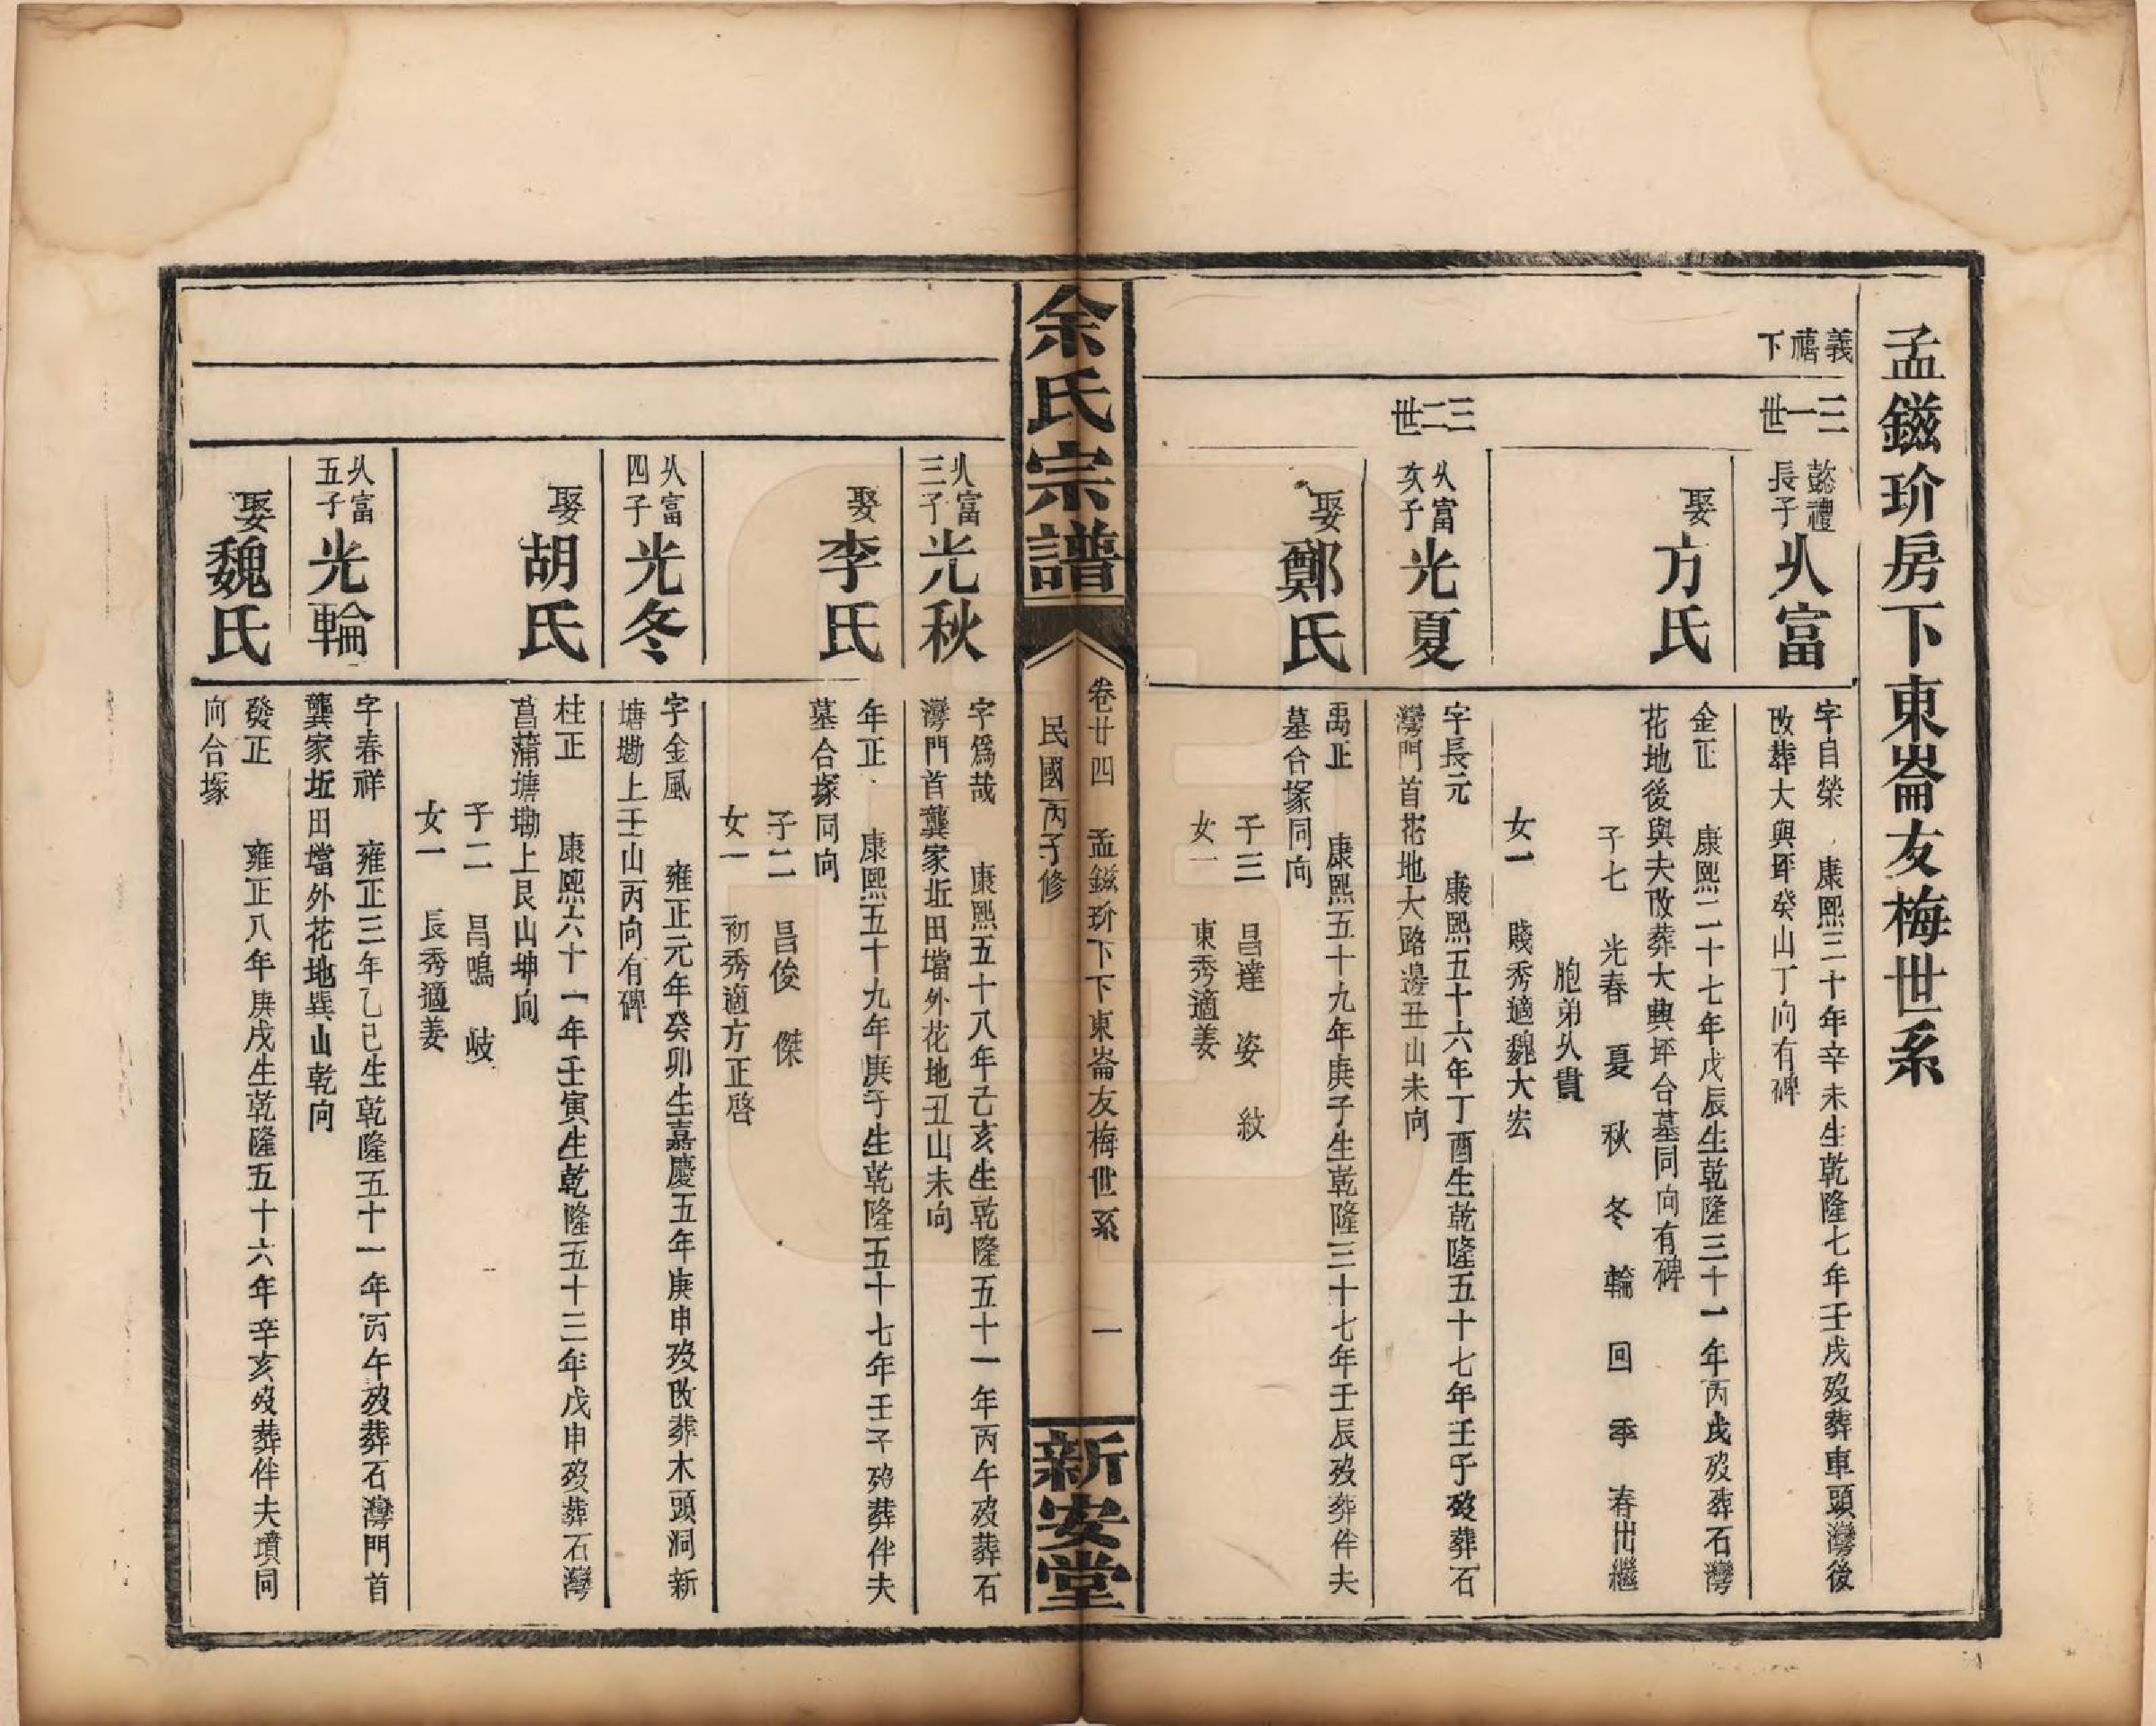 孟鎡玠房下東崙友梅世系
義禧下
三一世
懿禮長子
乆富
字自榮 康熙三十年辛未生乾隆七年壬戌歿葬車頭灣後
改葬大興坪癸山丁向有碑
娶方氏
金正 康熙二十七年戊辰生乾隆三十一年丙戌歿葬石灣
花地後與夫改葬大興坪合墓同向有碑
子七 光春 夏 秋 冬 輪 回 季 春出繼
胞弟乆貴
女一 賤秀適魏大宏
三二世
乆富次子
光夏
字長元 康熙五十六年丁酉生乾隆五十七年壬子歿葬石
灣門首花地大路邊丑山未向
娶鄭氏
禹正 康熙五十九年庚子生乾隆三十七年壬辰歿葬伴夫
墓合塚同向
子三 昌達 姿 紋
女一 東秀適姜
余氏宗譜
卷廿四 孟鎡玠下下東崙友梅世系 一
民國丙子修
新安堂
乆富三子
光秋
字為哉 康熙五十八年己亥生乾隆五十一年丙午歿葬石
灣門首龔家坵田壋外花地丑山未向
娶李氏
年正 康熙五十九年庚子生乾隆五十七年壬子歿葬伴夫
墓合塚同向
子二 昌俊 傑
女一 初秀適方正啓
乆富四子
光冬
字金風 雍正元年癸卯生嘉慶五年庚申歿改葬木頭洞新
塘塝上壬山丙向有碑
娶胡氏
柱正 康熙六十一年壬寅生乾隆五十三年戊申歿葬石灣
菖蒲塘塝上艮山坤向
子二 昌鳴 岐
女一 長秀適姜
乆富五子
光輪
字春祥 雍正三年乙巳生乾隆五十一年丙午歿葬石灣門首
龔家坵田壋外花地巽山乾向
娶魏氏
發正 雍正八年庚戌生乾隆五十六年辛亥歿葬伴夫墳同
向合塚